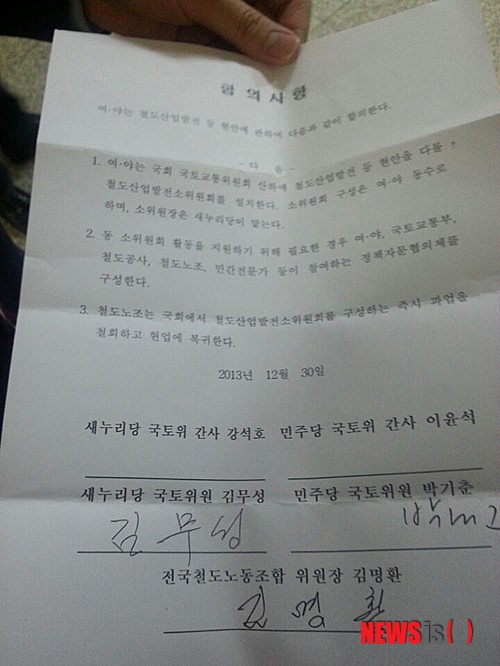 합의사항
여·야는 철도산업발전 등 현안에 관하여 다음과 같이 합의한다.
- 다 음 -
1. 여·야는 국회 국토교통위원회 산하에 철도산업발전 등 현안을 다룰
철도산업발전소위원회를 설치한다. 소위원회 구성은 여·야 동수로
하며, 소위원장은 새누리당이 맡는다.
2. 동 소위원회 활동을 지원하기 위해 필요한 경우 여·야, 국토교통부,
철도공사, 철도노조, 민간전문가 등이 참여하는 정책자문협의체를
구성한다.
3. 철도노조는 국회에서 철도산업발전소위원회를 구성하는 즉시 파업을
철회하고 현업에 복귀한다.
2013년 12월 30일
새누리당 국토위 간사 강석호 민주당 국토위 간사 이윤석
새누리당 국토위원 김무성 민주당 국토위원 박기춘
김무성
전국철도노동조합 위원장 김명환
김명환
NEWSis( )